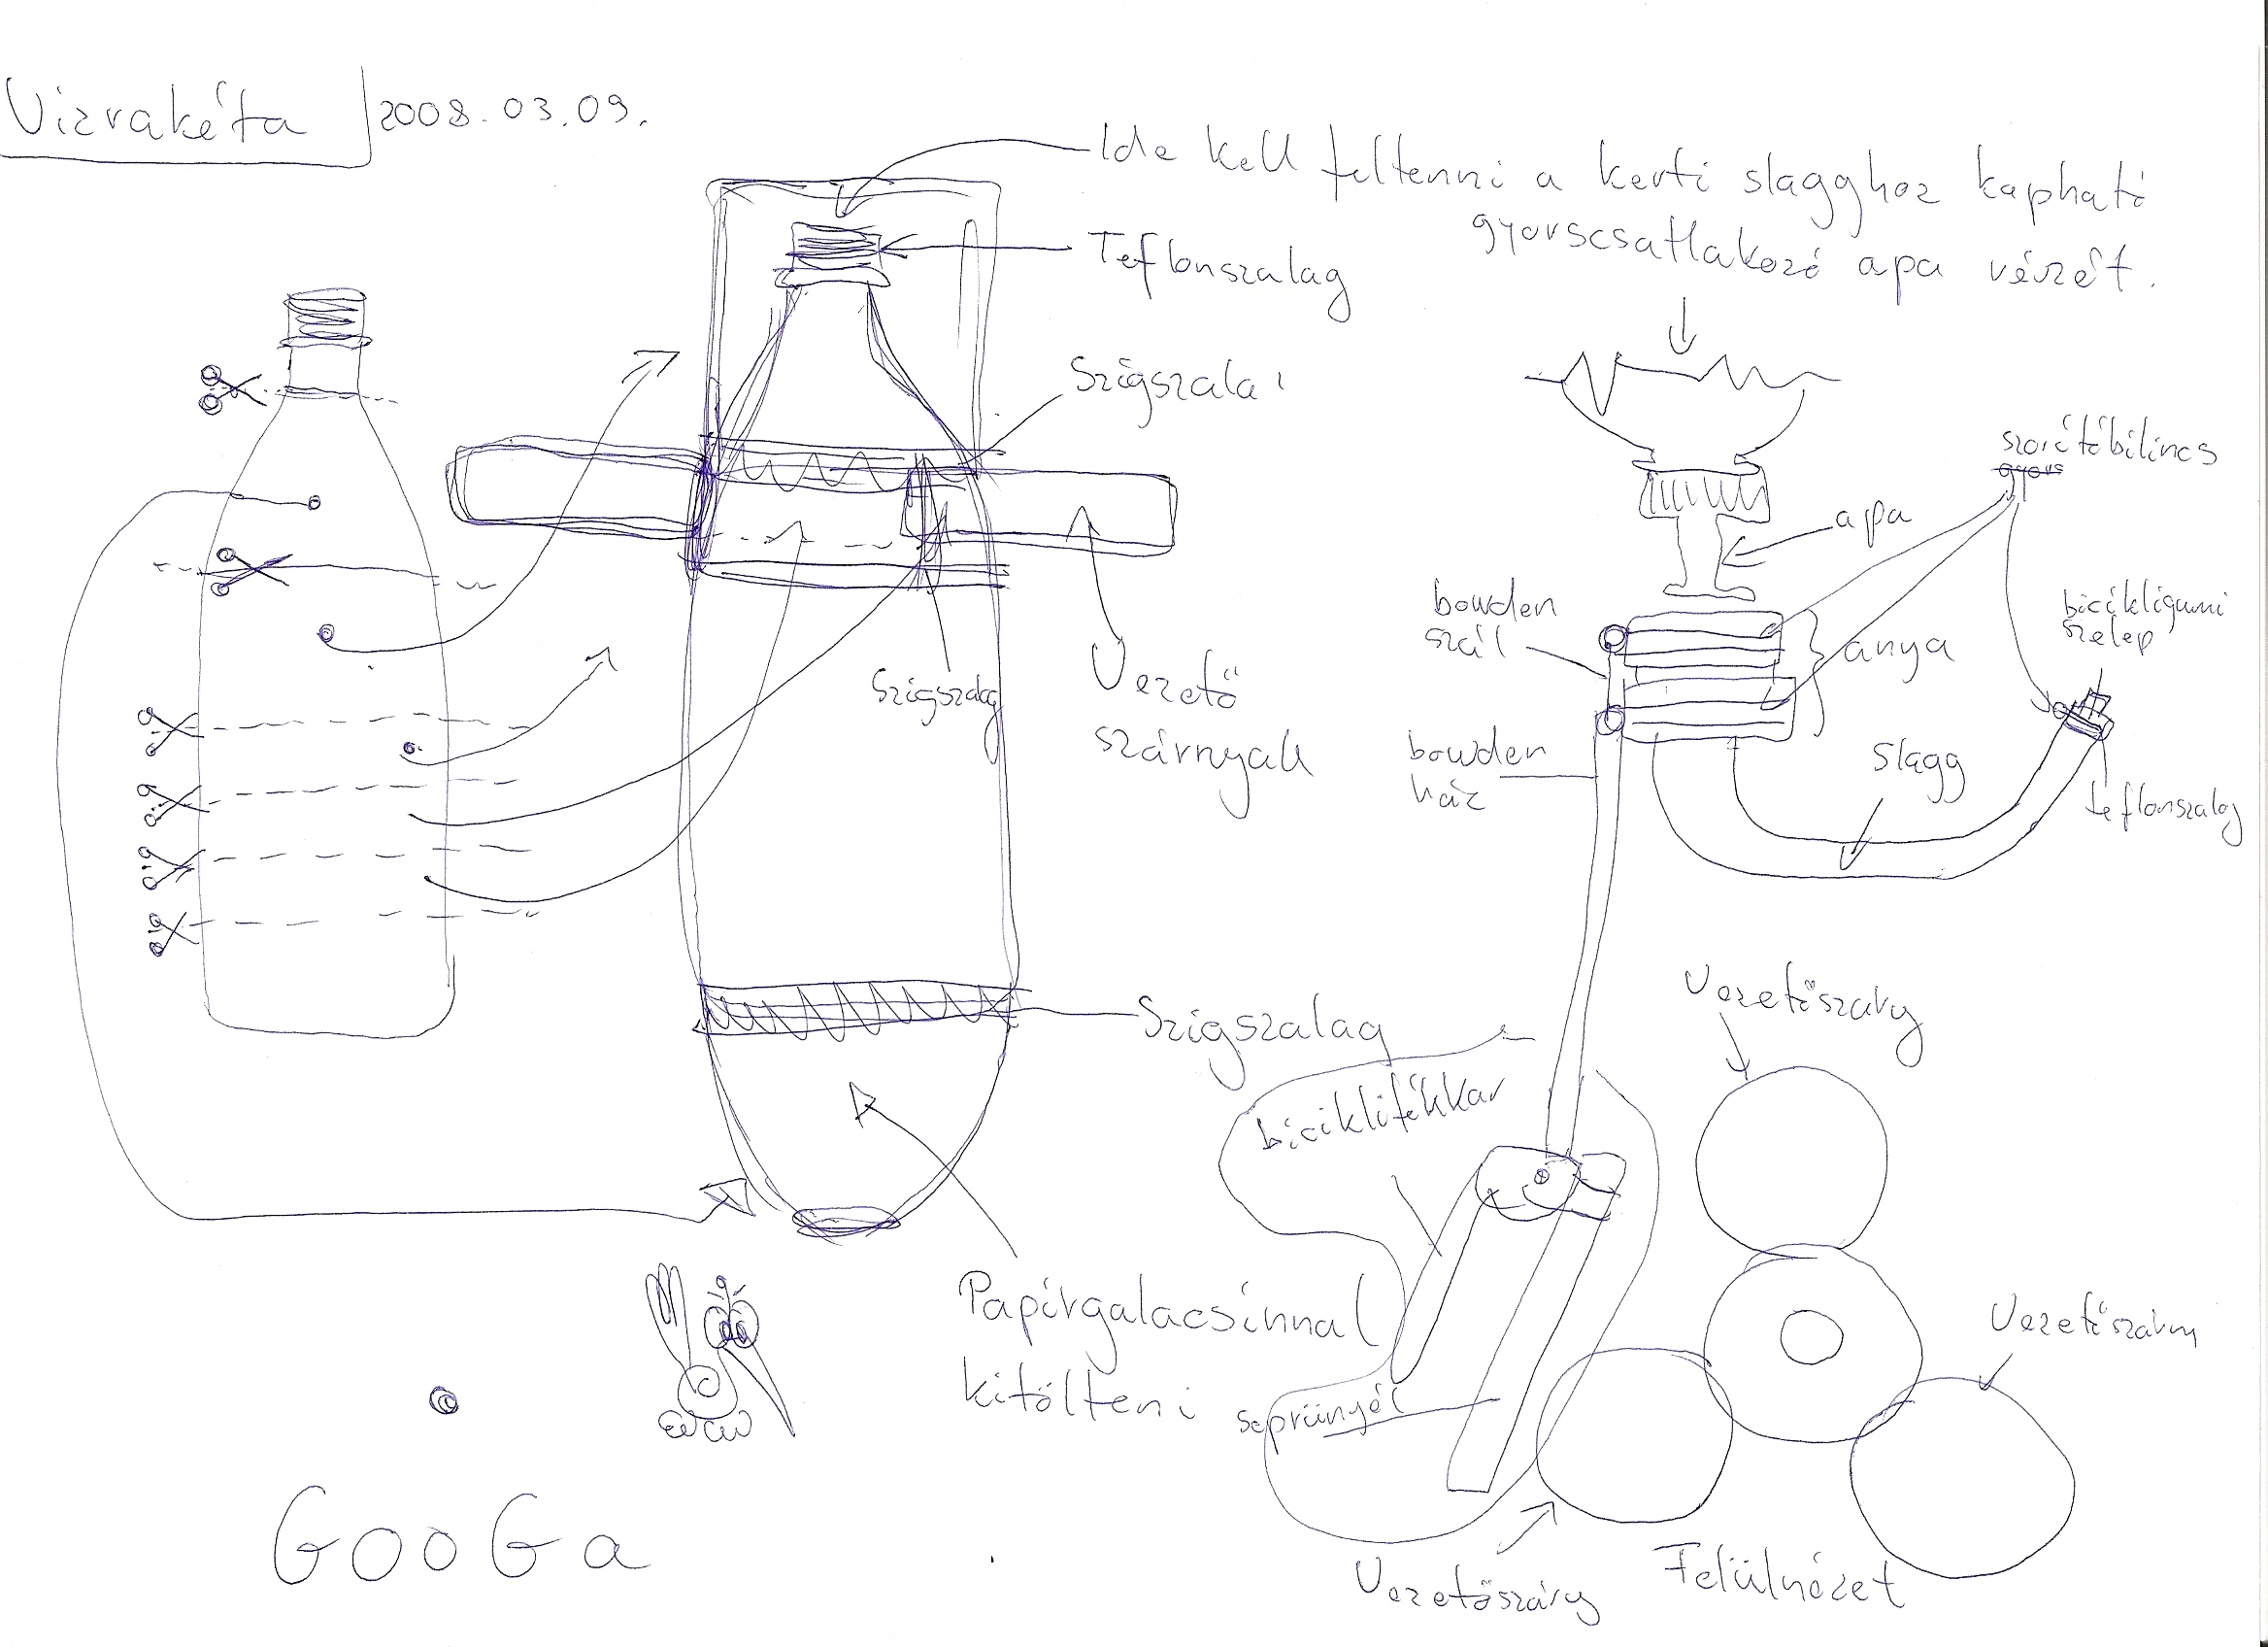 Vizrakéta 2008.03.09.
Ide kell feltenni a kerti slagghoz kapható
gyorscsatlakozó apa részét.
Teflonszalag
Szigszala
szorítóbilincs
gyors
apa
bowden
szál
anya
bicikligumi
szelep
Szigszalag
Vezető
szárnyak
bowden
ház
slagg
teflonszalag
Vezetőszárny
Szigszalag
biciklifékkar
Papírgalacsinnal
kitölteni
seprűnyél
Vezetőszárny
Vezetőszárny
Felülnézet
GooGa